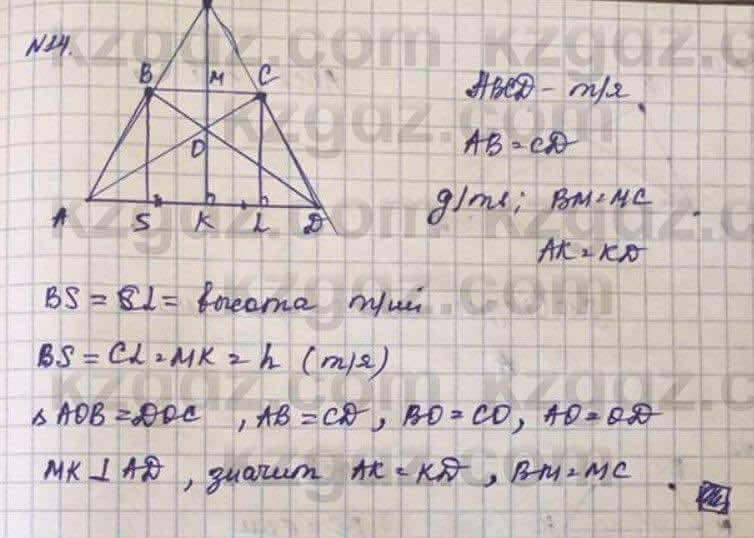 N24.
B M C
O
A S K L D
ABCD - т/я.
AB = CD
g/mв; BM = MC
AK = KD
BS = CL = высота т/ии
BS = CL = MK = h (т/я)
△ AOB = DOC, AB = CD, BO = CO, AO = OD
MK ⊥ AD, значит AK = KD, BM = MC.
kzgdz.com